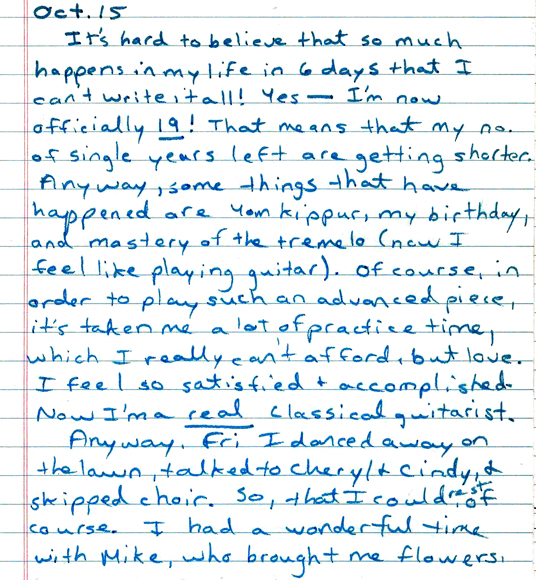 Oct. 15
It's hard to believe that so much
happens in my life in 6 days that I
can't write it all! Yes — I'm now
officially 19! That means that my no.
of single years left are getting shorter.
Anyway, some things that have
happened are Yom Kippur, my birthday,
and mastery of the tremelo (now I
feel like playing guitar). Of course, in
order to play such an advanced piece,
it's taken me a lot of practice time,
which I really can't afford, but love.
I feel so satisfied + accomplished.
Now I'm a real classical guitarist.
Anyway, Fri I danced away on
the lawn, talked to Cheryl + Cindy, +
skipped choir. So, that I could rest, of
course. I had a wonderful time
with Mike, who brought me flowers,